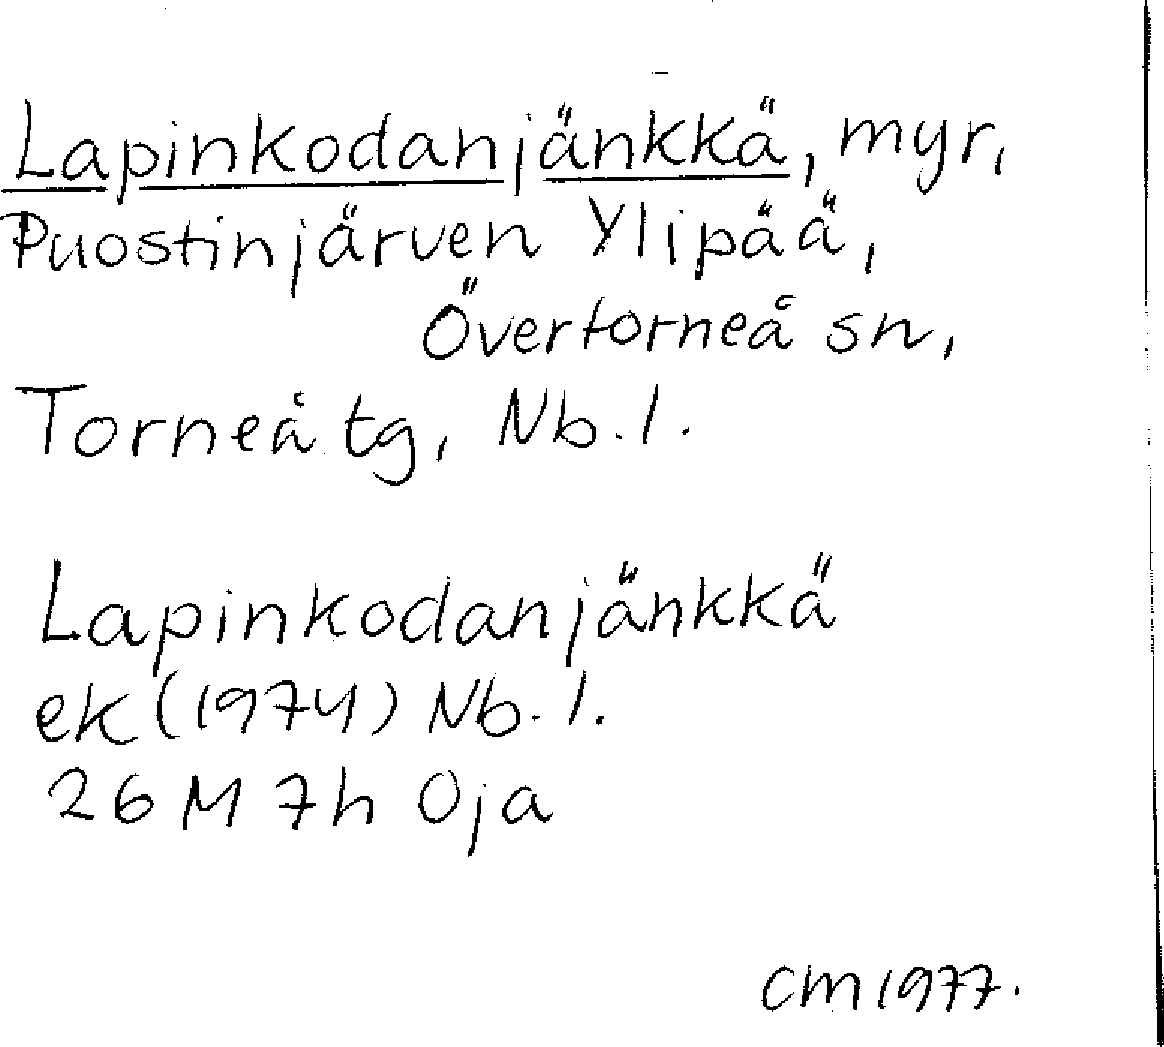 Lapinkodanjänkkä, myr,
Puostinjärven Ylipää,
Övertorneå sn,
Torneå tg, Nb. l.
Lapinkodanjänkkä
ek (1974) Nb. l.
26 M 7h Oja
CM 1977.